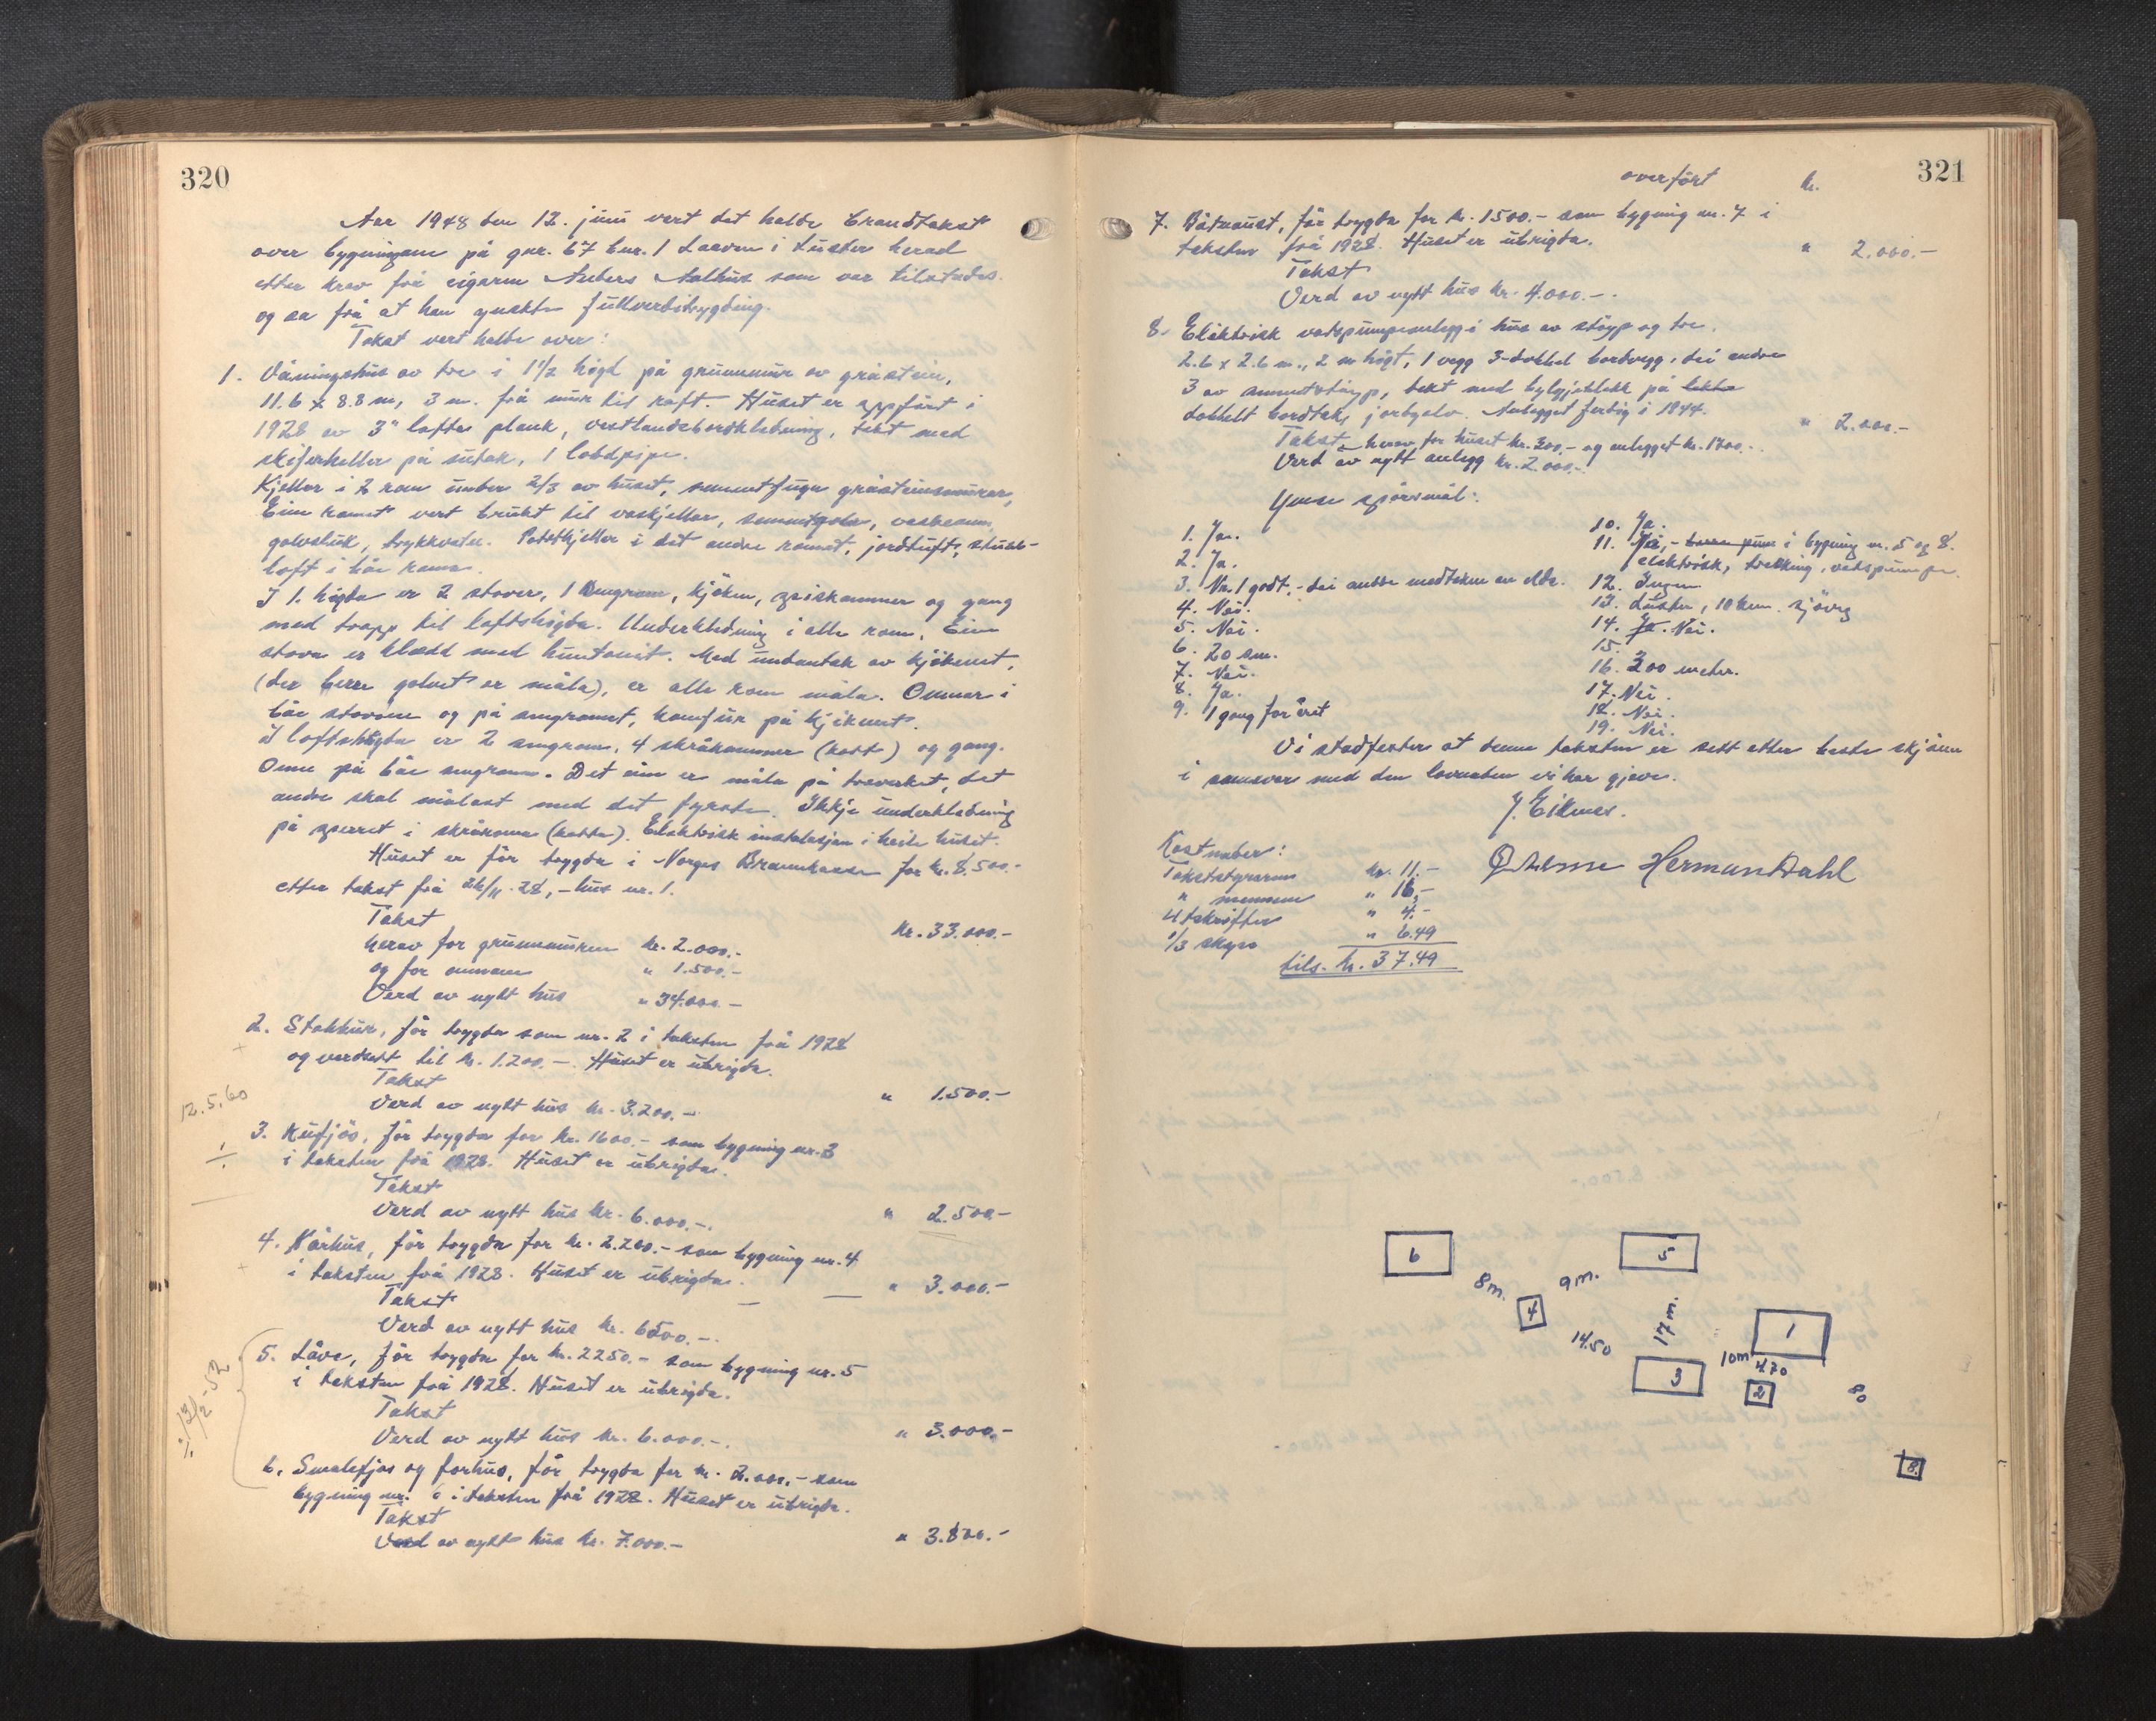 320
Aar 1948 den 12. juni vert det halde brandtakst
over bygningane på gnr. 67 bnr. 1 i Luster herad
etter krav frå eigaren Anders Aalhus som var tilstades
og sa frå at han ynskte fullverditrygding.
Takst vert halde over:
1. Våningshus av tre i 1 1/2 høgd på grunnmur av gråstein,
11.6 x 8.8 m, 3 m. frå mur til raft. Huset er oppført i
1928 av 3" lafta plank, vestlandsbordkledning, tekt med
skiferheller på sutak, 1 lodpipe.
Kjellar i 2 rom under 2/3 av huset, sementfuga gråsteinsmurar,
Eine romet vert brukt til vaskjellar, sementgolv,
golvsluk, trykkvatn. Potetkjellar i det andre romet, jordtuft, stubb-
loft i båe roma.
I 1. høgda er 2 stover, 1 sengrom, kjøken, spiskammer og gang
med trapp til loftshøgda. Underkledning i alle rom. Ein
stova er klædd med huntonit. Med undantak av kjøkenet,
(der berre golvet er måla), er alle rom måla. Omnar i
båe stovone og på sengromet, komfur på kjøkenet.
I loftshøgda er 2 sengrom, 4 skråkammer (kott) og gang.
Omn på båe sengroma. Det eine er måla på treverket, det
andre skal målast med det fyrste. Ikkje underkledning
på sperret i skråroma (kotta). Elektrisk instalasjon i heile huset.
Huset er før trygda i Norges Brannkasse for kr. 8.500.-
etter takst frå 26/11.28, - hus nr. 1.
Takst kr. 33.000.-
herav for grunnmuren kr. 2.000.-
og for omnane " 1.500.-
Verd av nytt hus " 34.000.-
2. Stabbur, før trygda som nr. 2 i taksten frå 1928
og verdsatt til kr. 1.200.-. Huset er ubrigda.
Takst " 1.500.-
Verd av nytt hus kr. 3.200.-
12.5.60
3. Kufjøs, før trygda for kr. 1600.- som bygning nr. 3
i taksten frå 1928. Huset er ubrigda.
Takst " 2.500.-
Verd av nytt hus kr. 6.000.-.
4. Kårhus, før trygda for kr. 2.200.- som bygning nr. 4
i taksten frå 1928. Huset er ubrigda.
Takst " 3.000.-
Verd av nytt hus kr. 6500.-.
5. Låve, før trygda for kr. 2250.- som bygning nr. 5
i taksten frå 1928. Huset er ubrigda.
Takst
Verd av nytt hus kr. 6.000.-. " 3.000.-
13/2-52
6. Smalefjøs og forhus, før trygda for kr. 2.000.- som
bygning nr. 6 i taksten frå 1928. Huset er ubrigda.
Takst
Verd av nytt hus kr. 7.000.- " 3.800.-
321
overført kr.
7. Båtnaust, før trygda for kr. 1500.- som bygning nr. 7 i
taksten frå 1928. Huset er ubrigda.
Takst " 2.000.-
Verd av nytt hus kr. 4.000.-.
8. Elektrisk vatspumpeanlegg i hus av støyp og tre.
2.6 x 2.6 m., 2 m høgt, 1 vegg 3-dobbel bordvegg, dei andre
3 av sementstøyp, tekt med bylgjeblekk på lekta
dobbelt bordtak, jordgolv. Anlegget ferdig i 1944.
Takst, herav for huset kr. 300,- og anlegget kr. 1700.- " 2.000.-
Verd av nytt anlegg kr. 2.000.-
Ymse spörsmål:
1. Ja.
2. Ja.
3. Nr. 1 godt, - dei andre medtekne av elde.
4. Nei.
5. Nei.
6. 20 sm.
7. Nei.
8. Ja.
9. 1 gong for året
10. Ja.
11. Nei, - i bygning nr. 5 og 8.
elektrisk, tresking, vatspumpe.
12. Ingen
13. Luster, 10 km. sjøveg
14. Ja. Nei.
15.
16. 300 meter.
17. Nei.
18. Nei.
19. Nei.
Vi stadfester at denne taksten er sett etter beste skjønn
i samsvar med den lovnaden vi har gjeve.
Herman Dahl
Kostnader:
Takststyraren kr. 11.-
" mennene " 16,-
4 avskrifter " 4.-
1/3 skyss " 6.49
tils. kr. 37.49
6
5
8 m.
9 m.
4
17 m.
14.50
1
10 m
4.70
3
2
80
8.